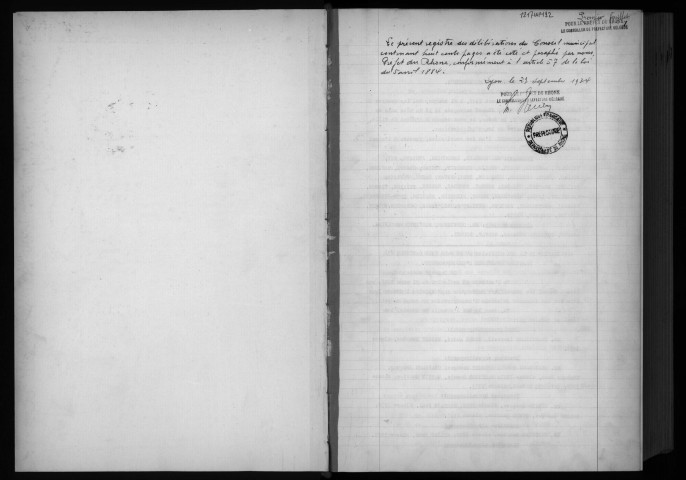 1217WP192
Premier feuillet
POUR LE PREFET DU RHONE
LE CONSEILLER DE PREFECTURE DELEGUE
Ce présent registre des délibérations du Conseil municipal
contenant huit cents pages a été coté et paraphé par nous,
Préfet du Rhône, conformément à l'article 57 de la loi
du 5 avril 1884.
Lyon, le 23 septembre 1924
POUR LE PREFET DU RHONE
LE CONSEILLER DE PREFECTURE DELEGUE
REPUBLIQUE FRANÇAISE
PREFECTURE
DEPARTEMENT DU RHONE